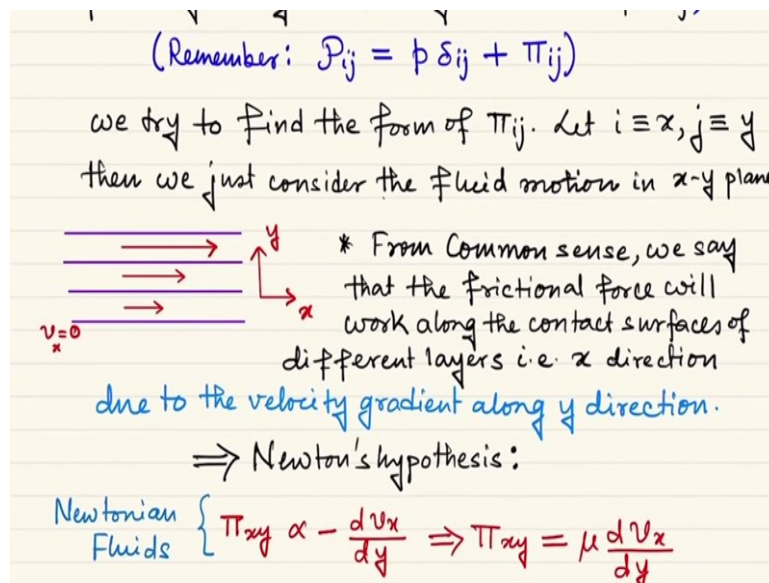 (Remember: Pij = p δij + πij)
we try to find the form of πij. Let i ≡ x, j ≡ y
then we just consider the fluid motion in x-y plane
y
* From Common sense, we say
that the frictional force will
x
vx=0
work along the contact surfaces of
different layers i.e. x direction
due to the velocity gradient along y direction.
⇒ Newton's hypothesis:
Newtonian Fluids { πxy ∝ - dvx/dy ⇒ πxy = μ dvx/dy